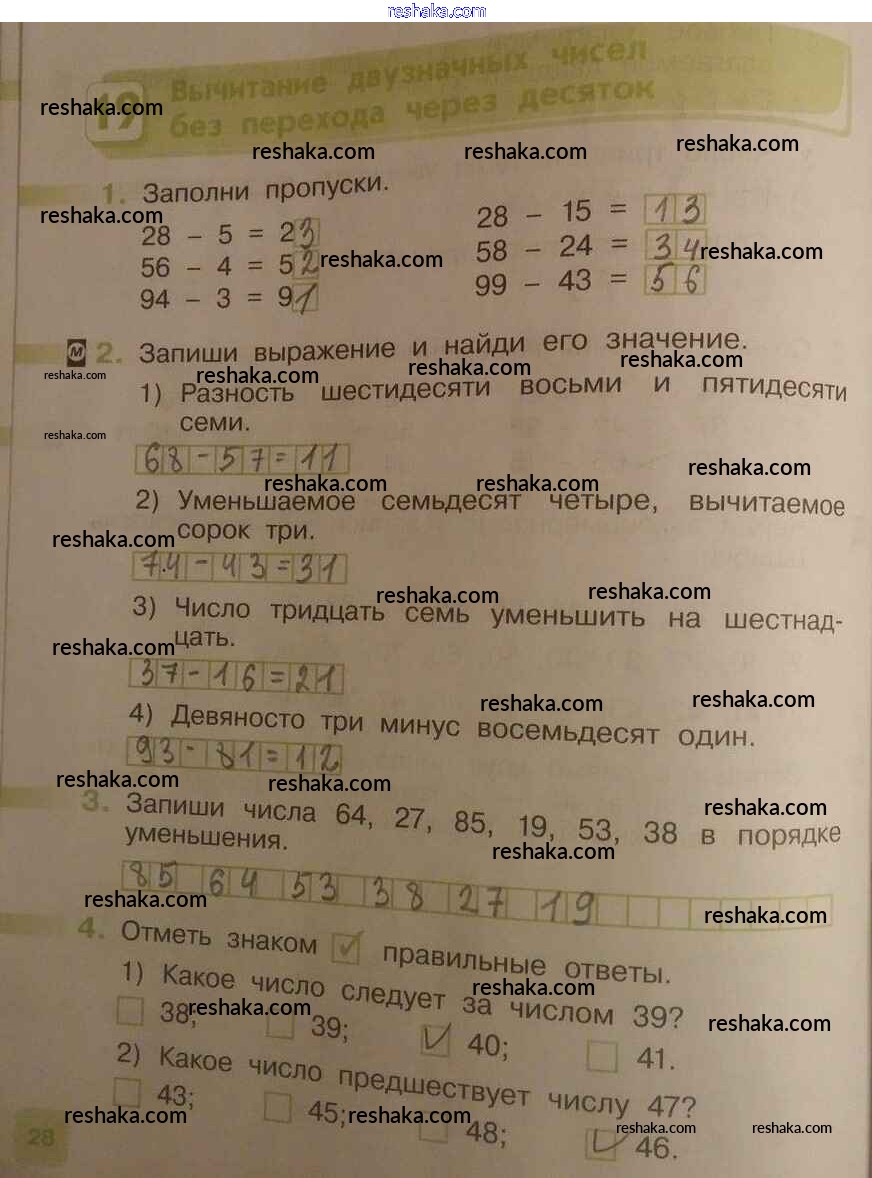 reshaka.com
19 Вычитание двузначных чисел
без перехода через десяток
reshaka.com
reshaka.com reshaka.com reshaka.com
1. Заполни пропуски.
reshaka.com
28 – 5 = 23 28 – 15 = 13
56 – 4 = 52 reshaka.com 58 – 24 = 34 reshaka.com
94 – 3 = 91 99 – 43 = 56
М 2. Запиши выражение и найди его значение.
reshaka.com reshaka.com reshaka.com reshaka.com
1) Разность шестидесяти восьми и пятидесяти
семи.
reshaka.com
68-57=11
reshaka.com reshaka.com reshaka.com
2) Уменьшаемое семьдесят четыре, вычитаемое
сорок три.
reshaka.com
74-43=31
reshaka.com reshaka.com
3) Число тридцать семь уменьшить на шестнад-
цать.
reshaka.com
37-16=21
reshaka.com reshaka.com
4) Девяносто три минус восемьдесят один.
93-81=12
reshaka.com reshaka.com
3. Запиши числа 64, 27, 85, 19, 53, 38 в порядке
reshaka.com
уменьшения.
reshaka.com
85 64 53 38 27 19
reshaka.com reshaka.com
4. Отметь знаком ✓ правильные ответы.
1) Какое число следует за числом 39?
reshaka.com
38; 39; ✓ 40; 41.
reshaka.com reshaka.com
2) Какое число предшествует числу 47?
43; 45; 48; ✓ 46.
reshaka.com reshaka.com reshaka.com reshaka.com
28